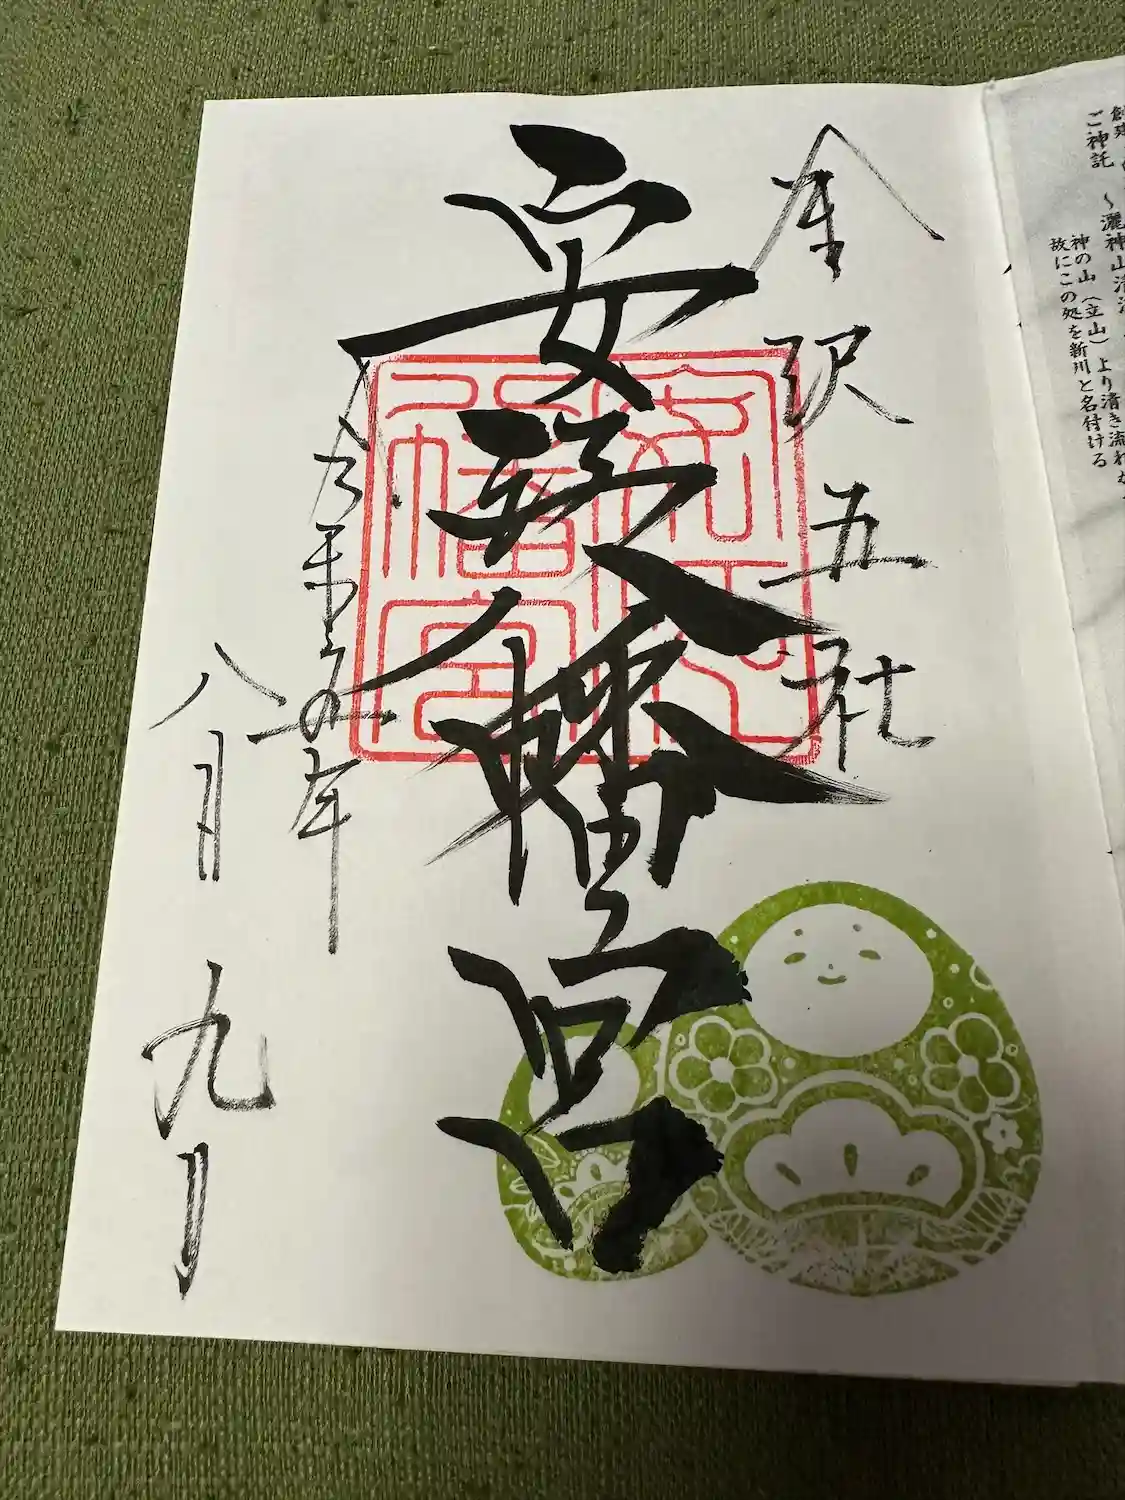 ご神託
神の山（立山）より清き流れ
故にこの処を新川と名付ける
金沢五社
安江八幡宮
安江
八幡宮
令和 年
八月九日